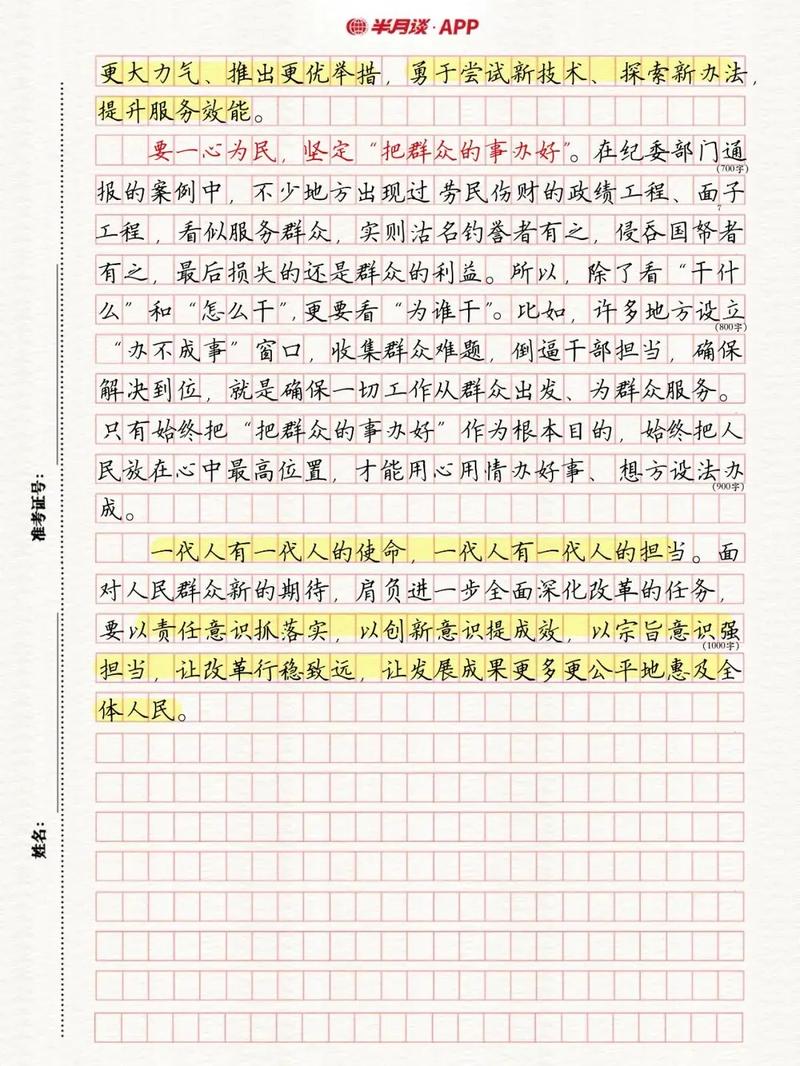 半月谈·APP
更大力气、推出更优举措，勇于尝试新技术、探索新办法，
提升服务效能。
要一心为民，坚定“把群众的事办好”。在纪委部门通
(700字)
报的案例中，不少地方出现过劳民伤财的政绩工程、面子
工程，看似服务群众，实则沽名钓誉者有之，侵吞国帑者
有之，最后损失的还是群众的利益。所以，除了看“干什
么”和“怎么干”，更要看“为谁干”。比如，许多地方设立
(800字)
“办不成事”窗口，收集群众难题，倒逼干部担当，确保
解决到位，就是确保一切工作从群众出发、为群众服务。
只有始终把“把群众的事办好”作为根本目的，始终把人
民放在心中最高位置，才能用心用情办好事、想方设法办
(900字)
成。
一代人有一代人的使命，一代人有一代人的担当。面
对人民群众新的期待，肩负进一步全面深化改革的任务，
要以责任意识抓落实，以创新意识提成效，以宗旨意识强
(1000字)
担当，让改革行稳致远，让发展成果更多更公平地惠及全
体人民。
准考证号：
姓名：